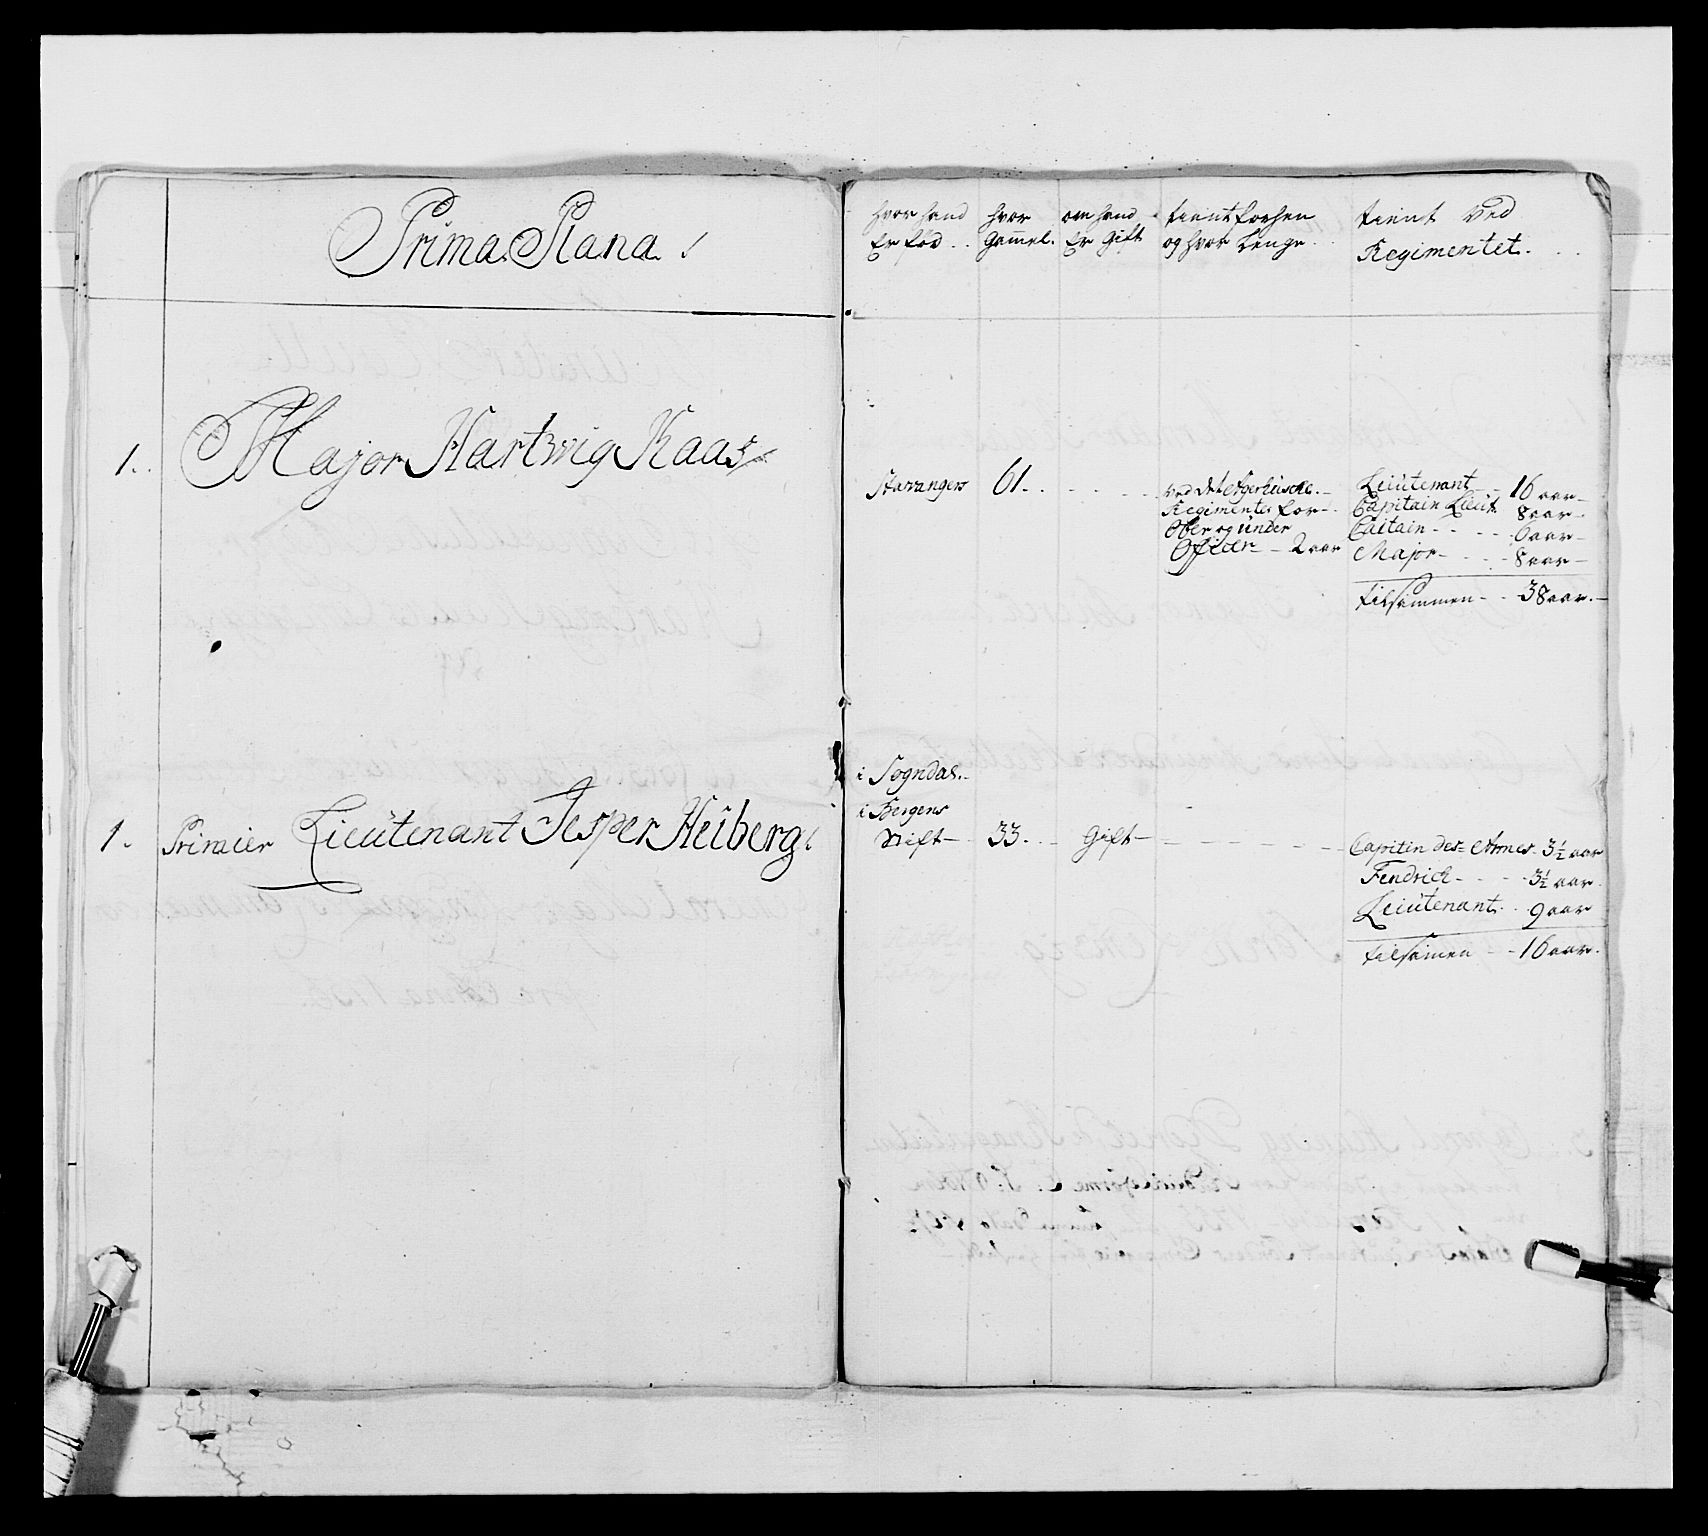 Prima Plana
1. Major Hartwig Kaas
1. Primier Lieütenant Jesper Heiberg
hvor hand hvor om hand tient forhen tient ved
Er föd Gammel. Er Gift og hvor Lenge Regimentet.
Stavanger 61.
ved det Agerhusche
Regimenter for
Ober og ünder
Officier 2 aar
Lieütenant 16 aar
Capitain Lieut 8 aar
Caitain 6 aar
Major 8 aar
tilsammen 38 aar.
i Sogndal
i Bergens
Stift 33. Gift
Capitin des Armes 3½ aar
Fendrich 3½ aar
Lieütenant 9 aar
tilsamen 16 aar.